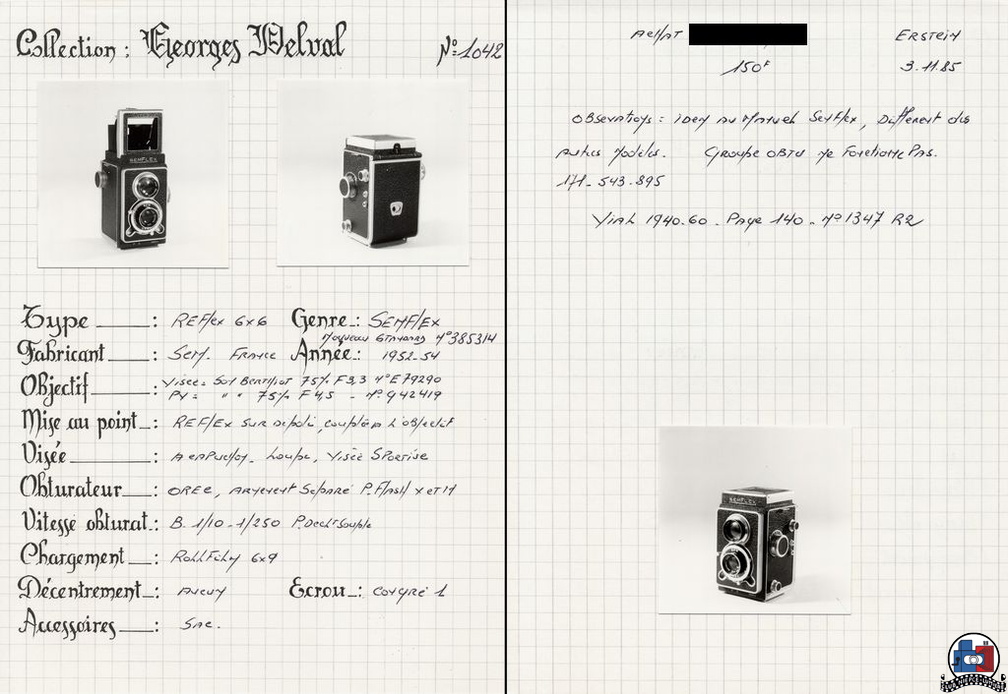 Collection : Georges Delval N°: 1042
Type : REFlex 6x6 Genre : SEMFlEx
Nouveau Standard N° 385314
Fabricant : Sem. France Année : 1952-54
Objectif : Visée : Som Berthiot 75% F 3,3 N° E79290
PV : " " 75% F 4,5 - N° G42419
Mise au point : REFlEx sur depoli, couplé à l'objectif
Visée : A capuchon. Loupe, Visée Sportive
Obturateur : OREC, Armement Séparé P. Flash X et M
Vitesse obturat. : B. 1/10 - 1/250 P. Decl+Souple
Chargement : Rollfilm 6x9
Décentrement : Aucun Ecrou : Congré 1
Accessoires : Sac.
SEMFLEX
AchAT ERSTEIN
150F 3.11.85
OBservations : idem au Manuel Semflex, Different des
Autres Modeles. Groupe OBTU Ne Fonctionne Pas.
171-543.895
Vial 1940.60 - Page 140 - N° 1347 R2
SEMFLEX